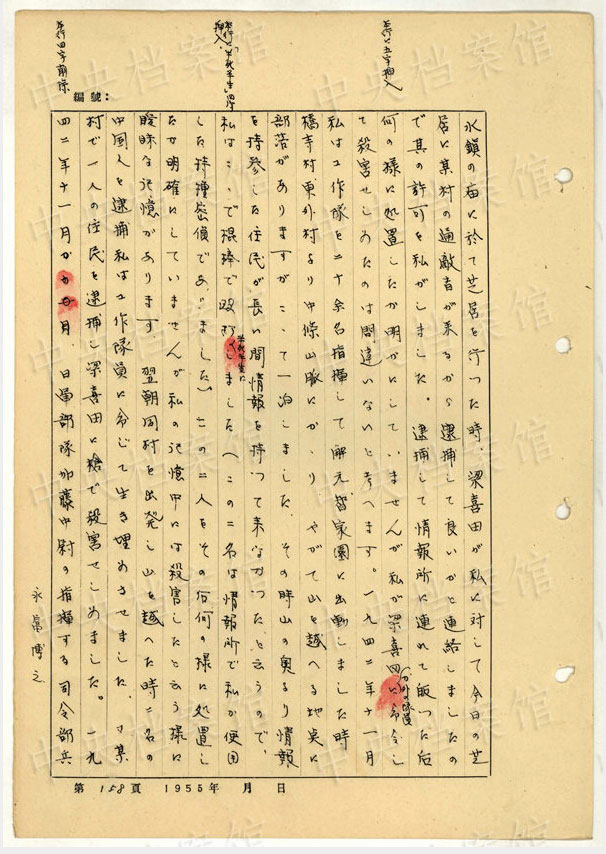 本行に五字押入
本行に「半死半生に」四字押入
本行四字削除
編號：
永鎖の庙に於て芝居を行つた時、梁喜田が私に対して今日の芝
居に某村の通敵者が来るから逮捕して良いかと連絡しましたの
で其の許可を私がしました。逮捕して情報所に連れて皈つた后
何の様に処置したか明かにしていませんが私が梁喜田に命令し
て殺害せしめたのは間違いないと考へます。一九四二年十一月
私は工作隊を二十余名指揮して解元、皆家園に出動しました時
橋寺村東外村より中條山脈にかゝり やがて山を越へる地点に
部落がありますが こゝで一泊しました、その時山の奥より情報
を持参した住民が長い間情報を持つて来なかつた、と云うので、
私はこゝで棍棒で殴打しました（この二名は情報所で私が使用
半死半生に
した特種密偵でありました）この二人をその后何の様に処置し
たか明確にしていませんが私の記憶中には殺害したと云う様に
曖昧な記憶があります 翌朝同村を出発し山を越へた時二名の
中国人を逮捕 私は工作隊員に命じて生き埋めさせました、又某
村で一人の住民を逮捕し梁喜田に槍で殺害せしめました。一九
四二年十一月 日 畠部隊加藤中尉の指揮する司令部兵
永富博之
第 158 頁 1955年 月 日
中央档案馆